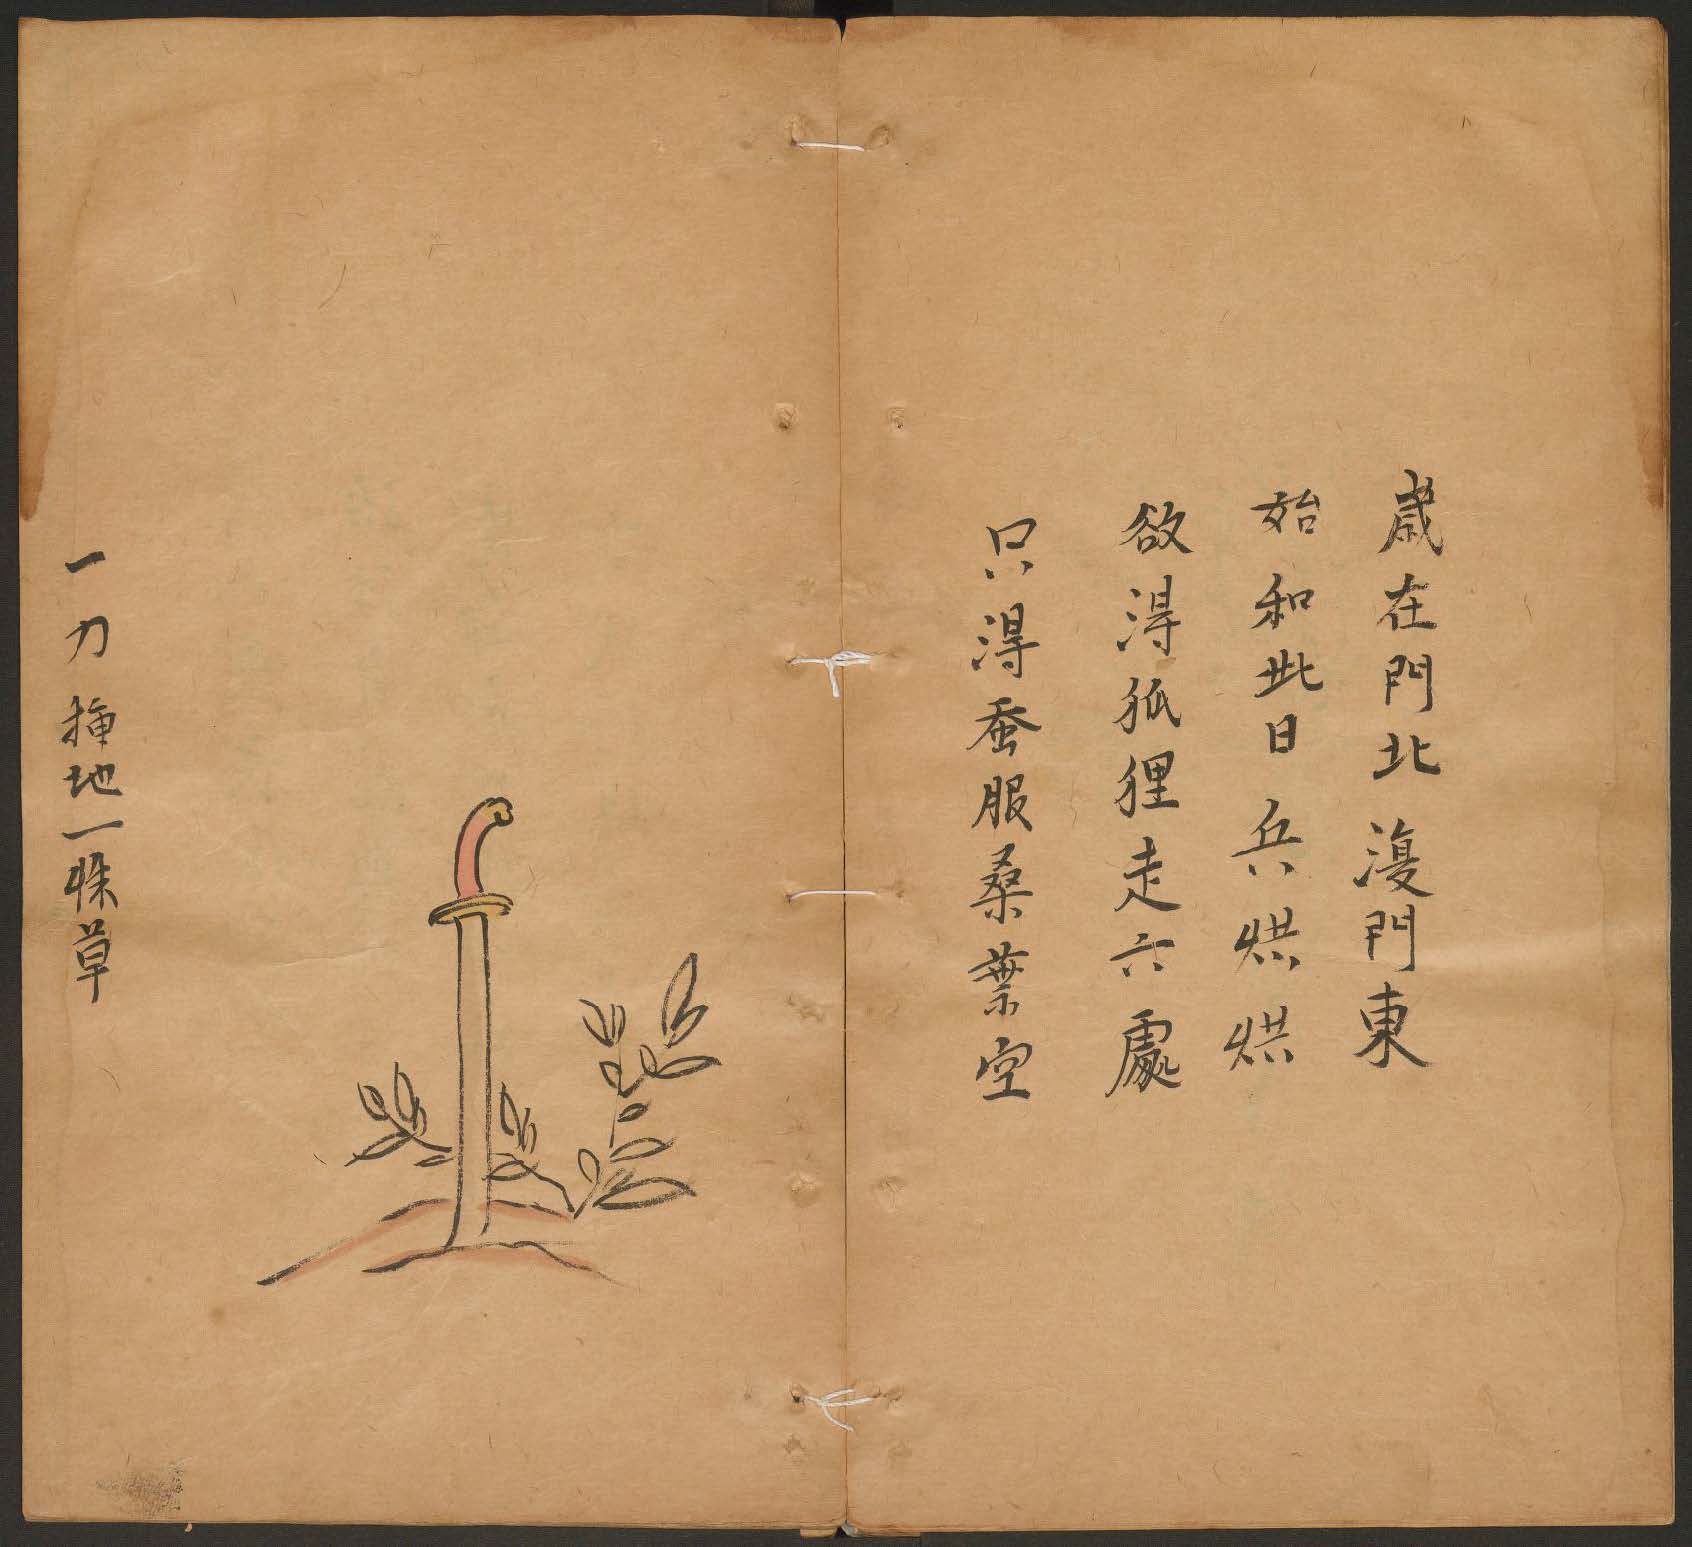 歲在門北漫門東
始和此日兵烘烘
欲淂狐狸走六處
只淂蚕服桑葉空
一刀揷地一株草